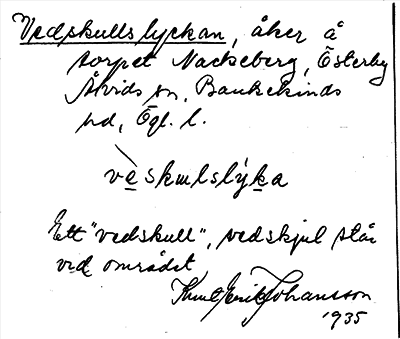 Vedskullslyckan, åker å
torpet Nackeberg, Österby
Åtvids sn, Bankekinds
hd, Ögl. l.
vèskulslýka
Ett "vedskull", vedskjul står
ved området
Knut Erik Johansson
1935